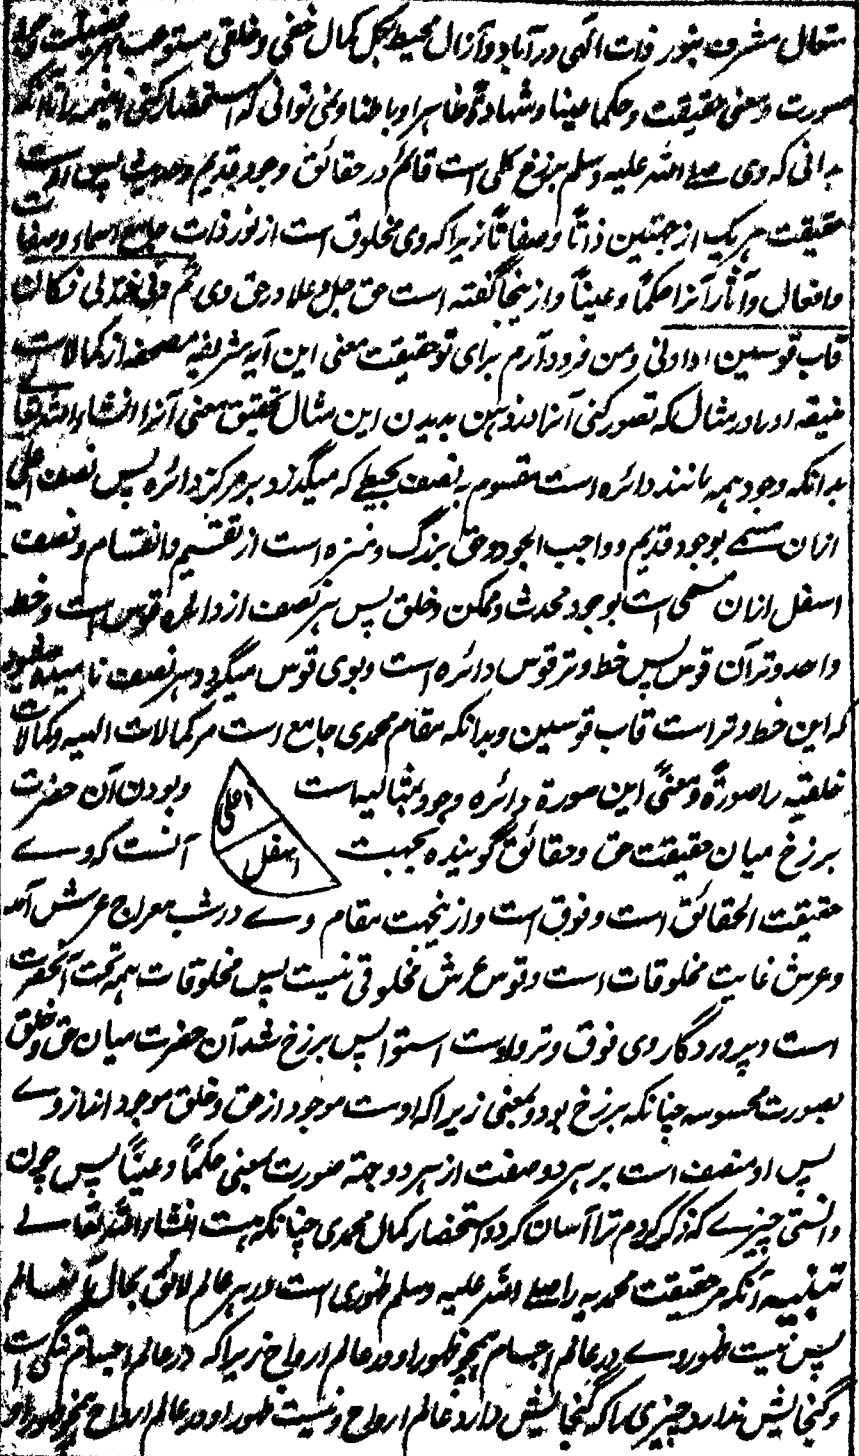 متعال مشرف بنور ذات الہی در آباد و آزال محیط بکل کمال خفی و خلقی مستوعب هر فضیلت و جمله
صورت و معنی حقیقت و حکما عینا و شهادة ظاهرا و باطنا و نمی توانی که استحضار کنی اینهمه را تا آنکه
بدانی که وی صلے اللہ علیه وسلم برزخ کلی است قائم در حقائق وجود قدیم و حدیث پس اوست
حقیقت هر یک از جهتین ذاتاً و صفاتاً زیرا که وی مخلوق است از نور ذات جامع اسماء و صفات
و افعال و آثار آنرا حکماً و عیناً و ازینجا گفته است حق جل و علا در حق وی ثم دنی فتدلی فکان
قاب قوسین او ادنی و من فرود آرم برای تو حقیقت معنی این آیه شریفه از کمالات
بدیدن این مثال تحقیق معنی آنرا انشاء اللہ تعا
بدانکه وجود همه مانند دائره است مقسوم به نصف بخطے که میگذرد بر مرکز دائره پس نصف اعلی
ازان مسمے بوجود قدیم و واجب الوجود و حق بزرگ و منزه است از تقسیم و انقسام و نصف
اسفل ازان مسمی است بوجود محدث و ممکن و خلق پس هر نصف از دائره قوس است و خط
واحد وتر آن قوس پس خط وتر قوس دائره است و بوی قوس میگردد هر نصف نامیده میشود
که این خط وتر است قاب قوسین و بدانکه مقام محمدی جامع است مر کمالات الهیه و کمالات
خلقیه را صورةً و معنیً این صورة دائره وجود بمثالیه است و بودن آن حضرت
اعلی
برزخ میان حقیقت حق و حقائق گوینده بجهت آنست که وے
اسفل
حقیقت الحقائق است و فوق است و ازینجهت مقام وے در شب معراج عرش آمد
و عرش غایت مخلوقات است و فوق عرش مخلوقی نیست پس مخلوقات همه تحت آنحضرت
است و پروردگار وی فوق وتر و اوست استوا پس برزخ شد آن حضرت میان حق و خلق
بصورت محسوسه چنانکه برزخ بود و بمعنی زیرا که اوست موجود از حق و خلق موجود اند از وے
پس او متصف است بر هر دو صفت از هر دو جهة صورت بمعنی حکماً و عیناً پس چون
دانستی چیزے که ذکر کردم ترا آسان گردد استحضار کمال محمدی چنانکه هست انشاء اللہ تعالے
تنبیه آنکه مر حقیقت محمدیه را صلے اللہ علیه وسلم ظهوری است در هر عالم لائق بحال آن عالم
پس نیست ظهور وے در عالم اجسام همچو ظهور او در عالم ارواح زیرا که در عالم اجسام تنگی است
و گنجایش ندارد چیزی را که گنجایش دارد عالم ارواح و نیست ظهور او در عالم ارواح همچو ظهور او